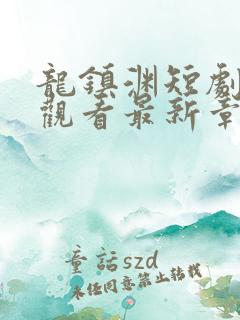 龍鎮淵短劇
觀看最新章
童話szd
未經同意禁止轉載